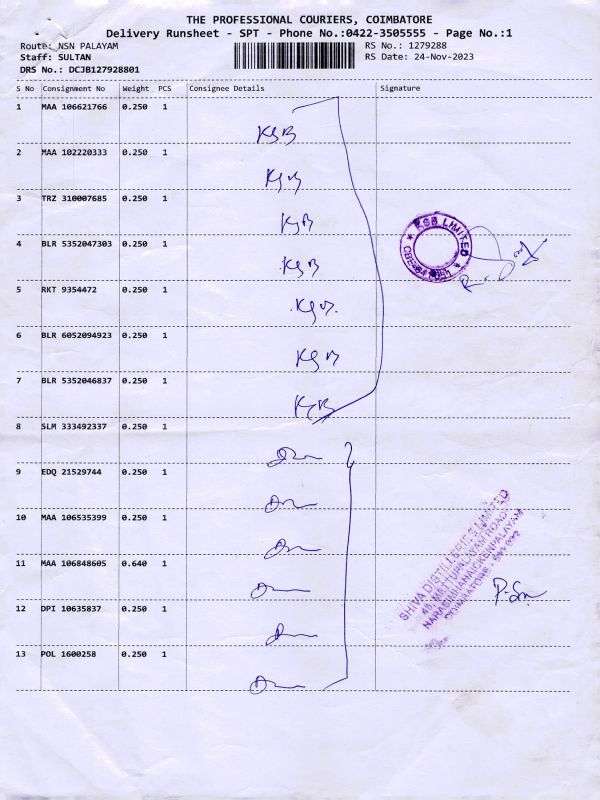 THE PROFESSIONAL COURIERS, COIMBATORE
Delivery Runsheet - SPT - Phone No.:0422-3505555 - Page No.:1
Route: NSN PALAYAM RS No.: 1279288
Staff: SULTAN RS Date: 24-Nov-2023
DRS No.: DCJB127928801
S No Consignment No Weight PCS Consignee Details Signature
1 MAA 106621766 0.250 1
KSB
2 MAA 102220333 0.250 1
KSB
3 TRZ 310007685 0.250 1
KSB
4 BLR 5352047303 0.250 1
KSB
5 RKT 9354472 0.250 1
KSB
6 BLR 6052094923 0.250 1
KSB
7 BLR 5352046837 0.250 1
KSB
8 SLM 333492337 0.250 1
9 EDQ 21529744 0.250 1
10 MAA 106535399 0.250 1
11 MAA 106848605 0.640 1
12 DPI 10635837 0.250 1
13 POL 1600258 0.250 1
KSB LIMITED
SHIVA DISTILLERIES LIMITED
METTUPALAYAM ROAD
NARASIMHANAICKENPALAYAM
COIMBATORE